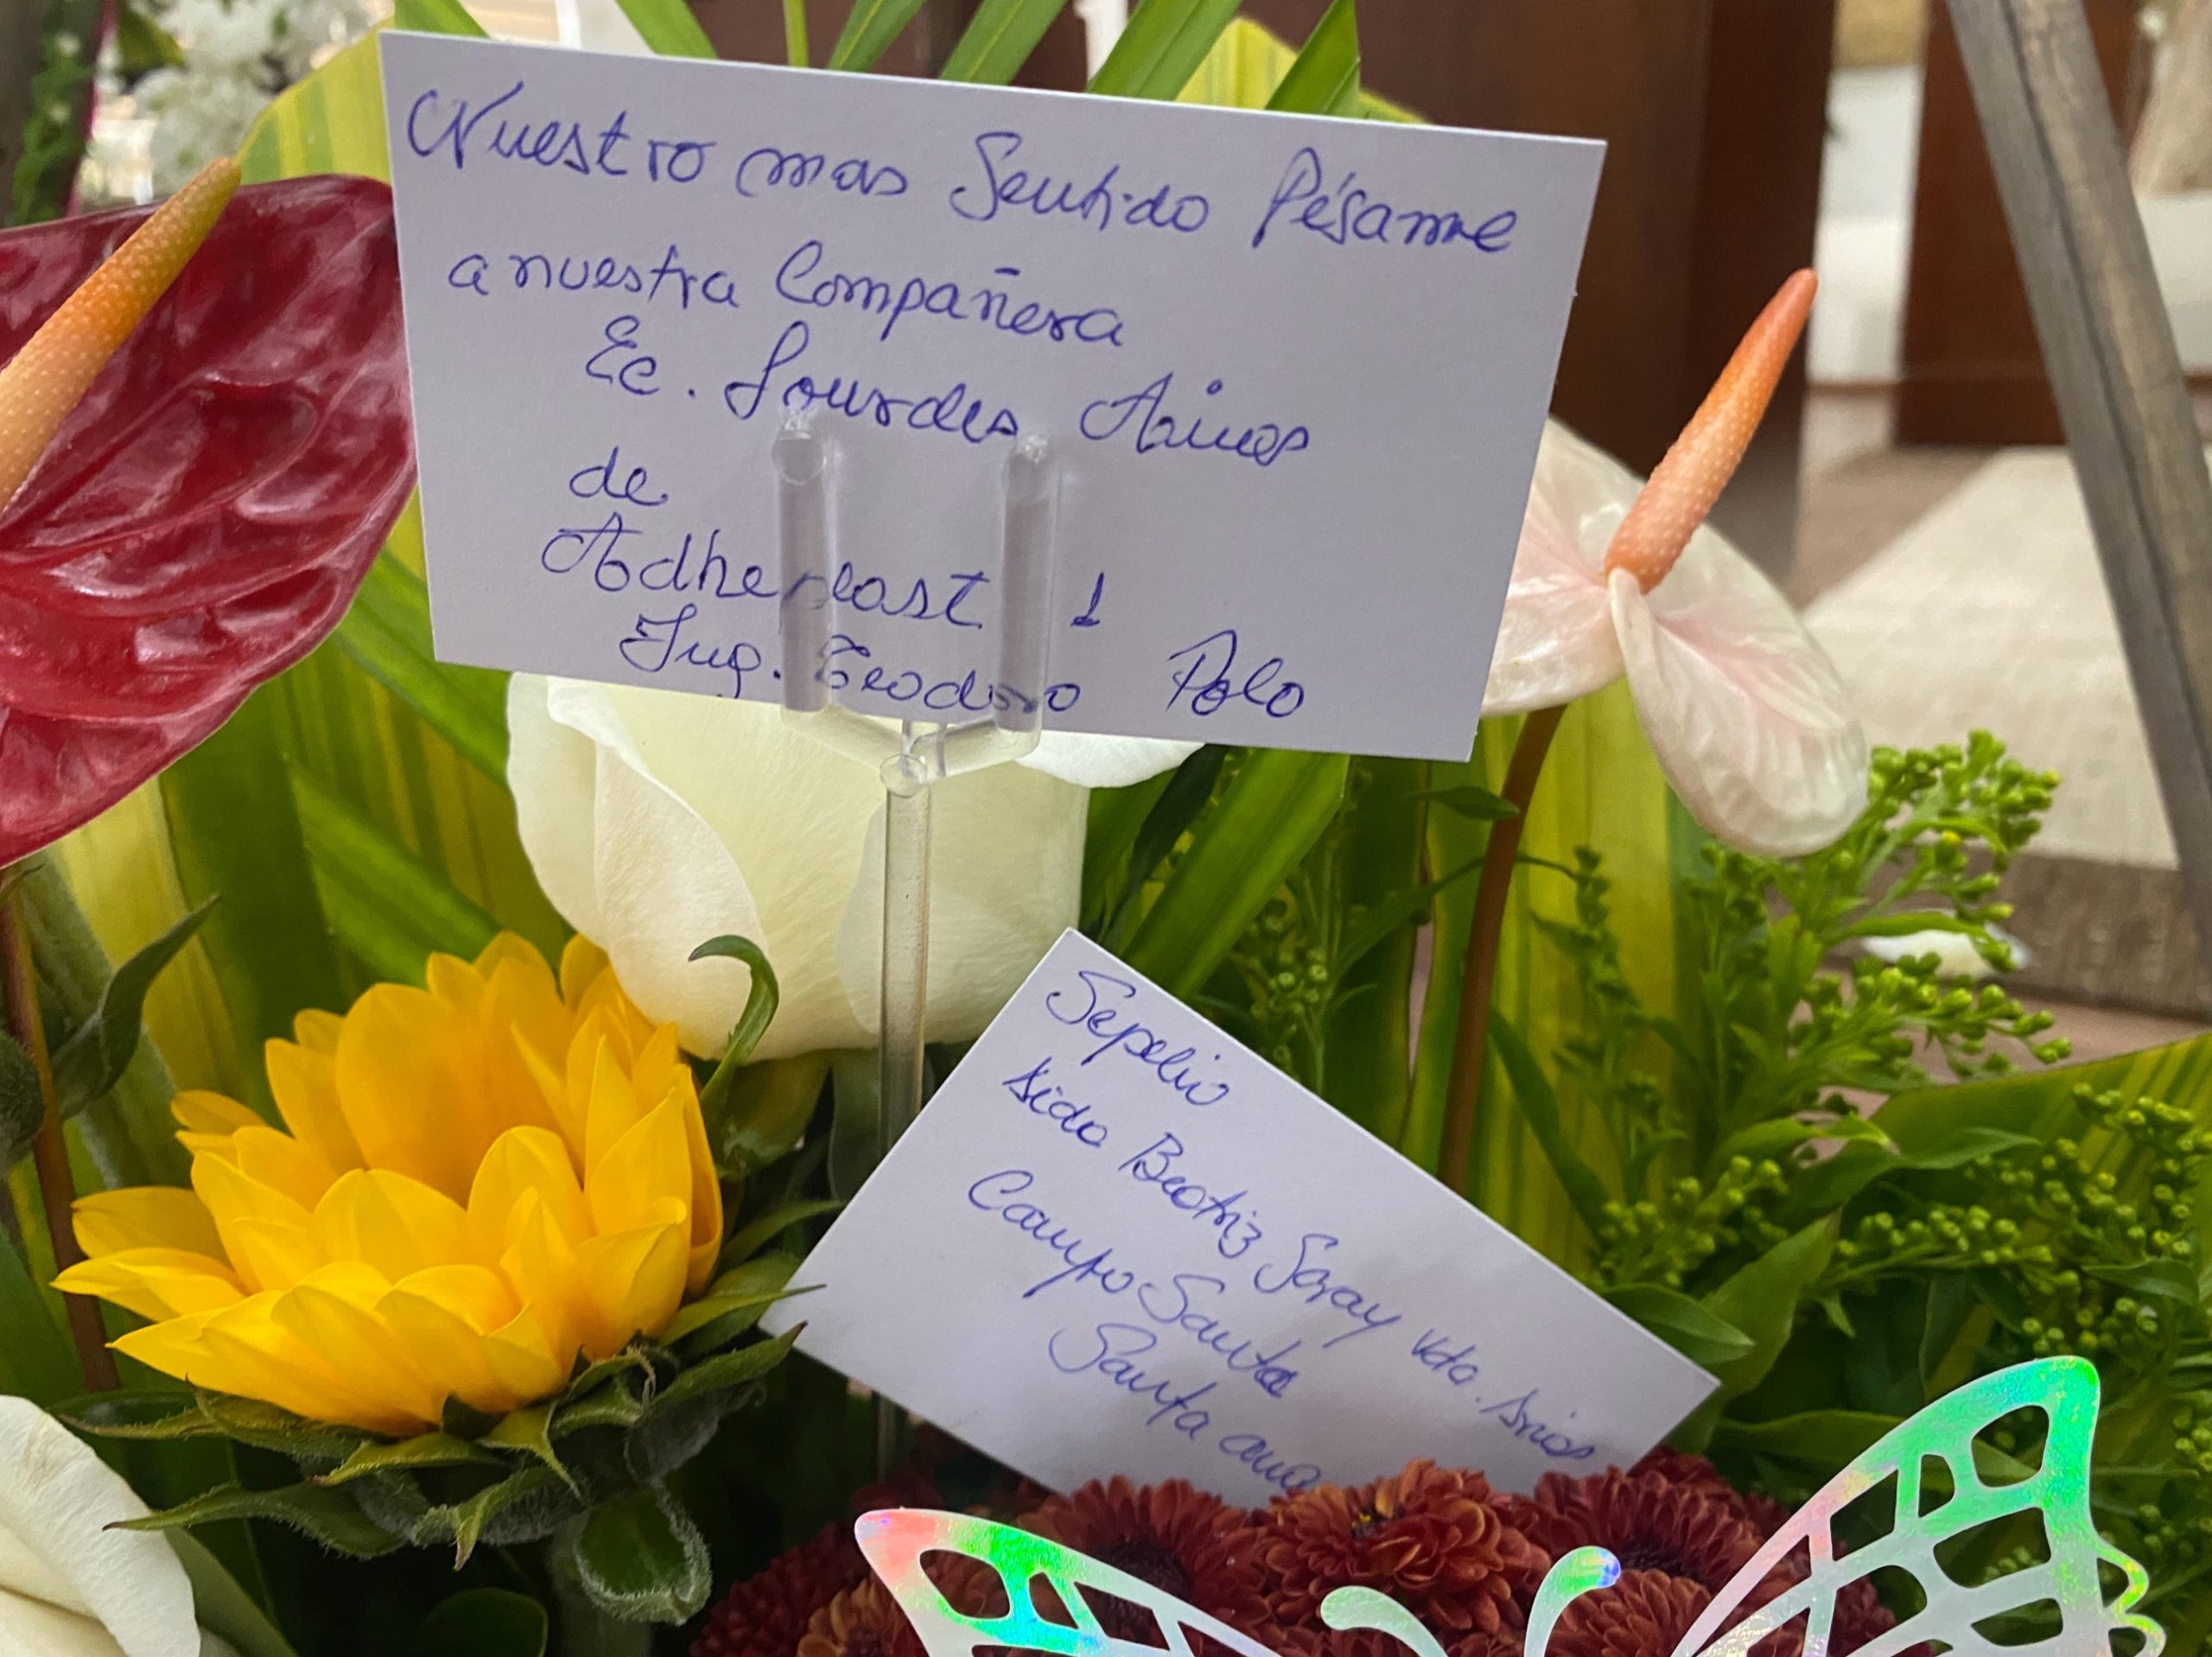 Nuestro mas Sentido Pésame
a nuestra Compañera
Ec. Lourdes
de
Adheplast 1
Ing. Teodoro Polo
Sepelio
Beatriz Garay Vda. Arios
Campo Santo
Santa ana